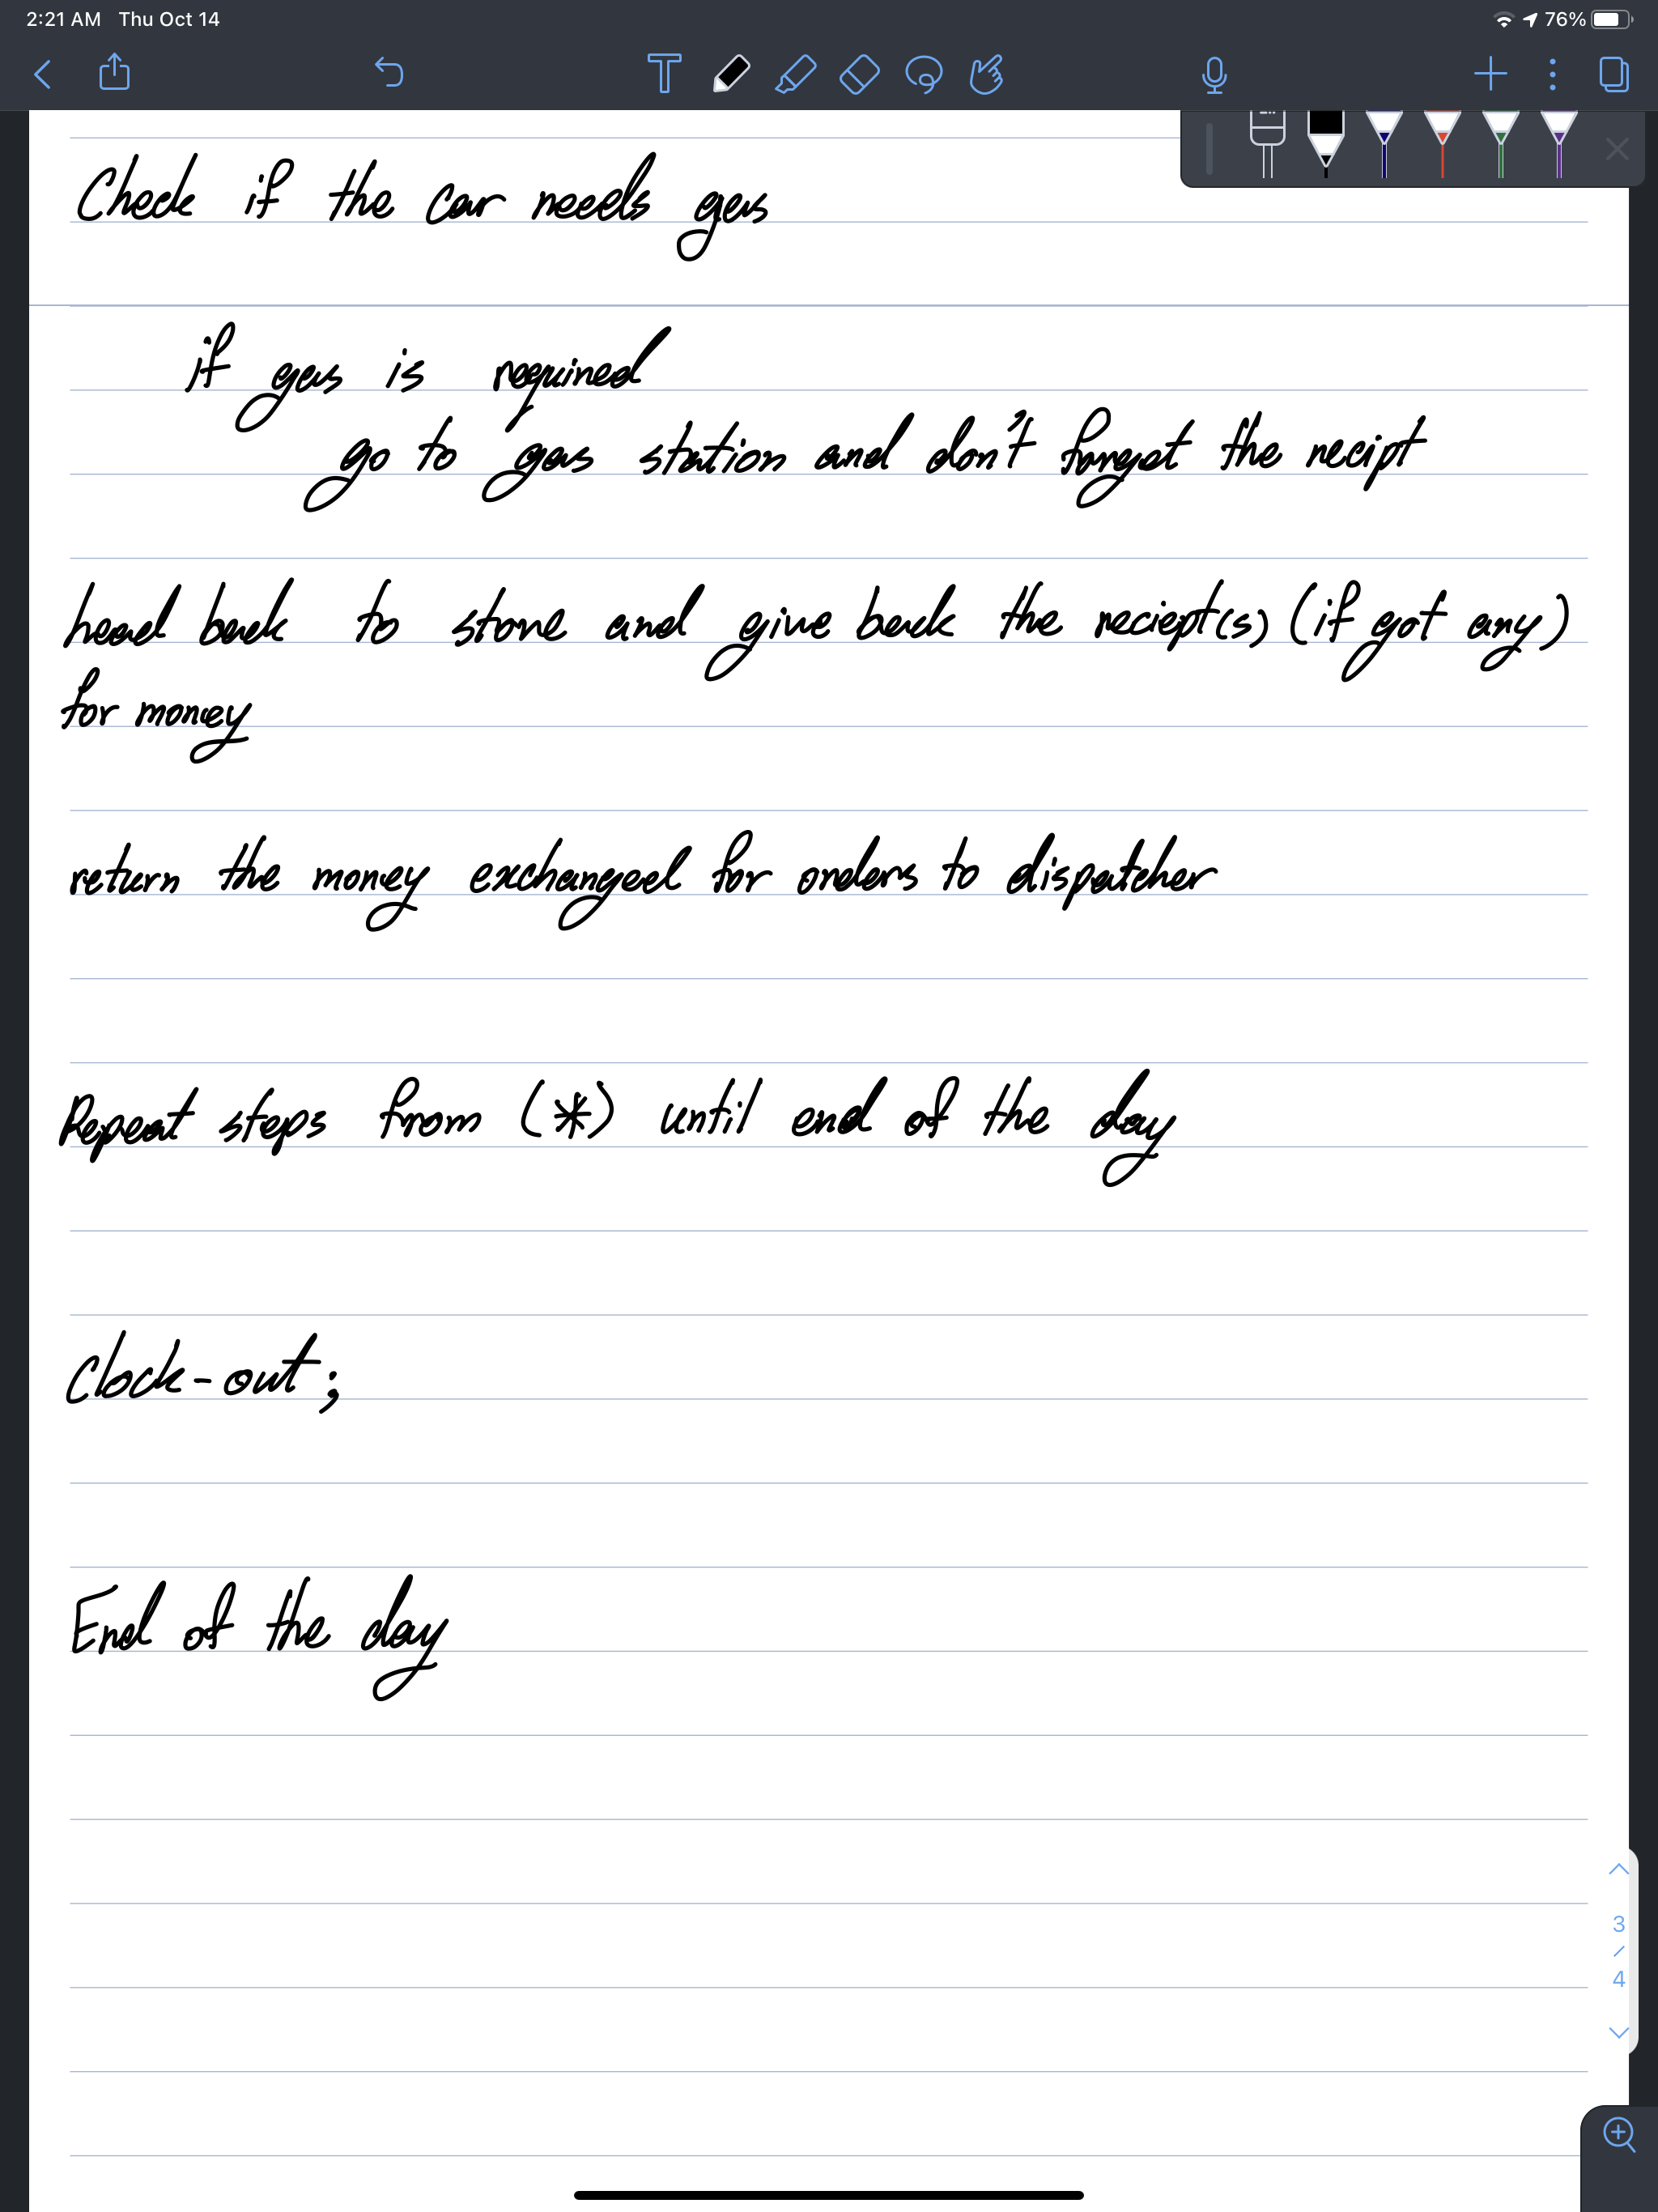 2:21 AM Thu Oct 14 76%
Check if the car needs gas
if gas is required
go to gas station and don't forget the recipt
head back to store and give back the reciept(s) (if got any)
for money
return the money exchanged for orders to dispatcher
Repeat steps from (*) until end of the day
Clock-out;
End of the day
3
/
4